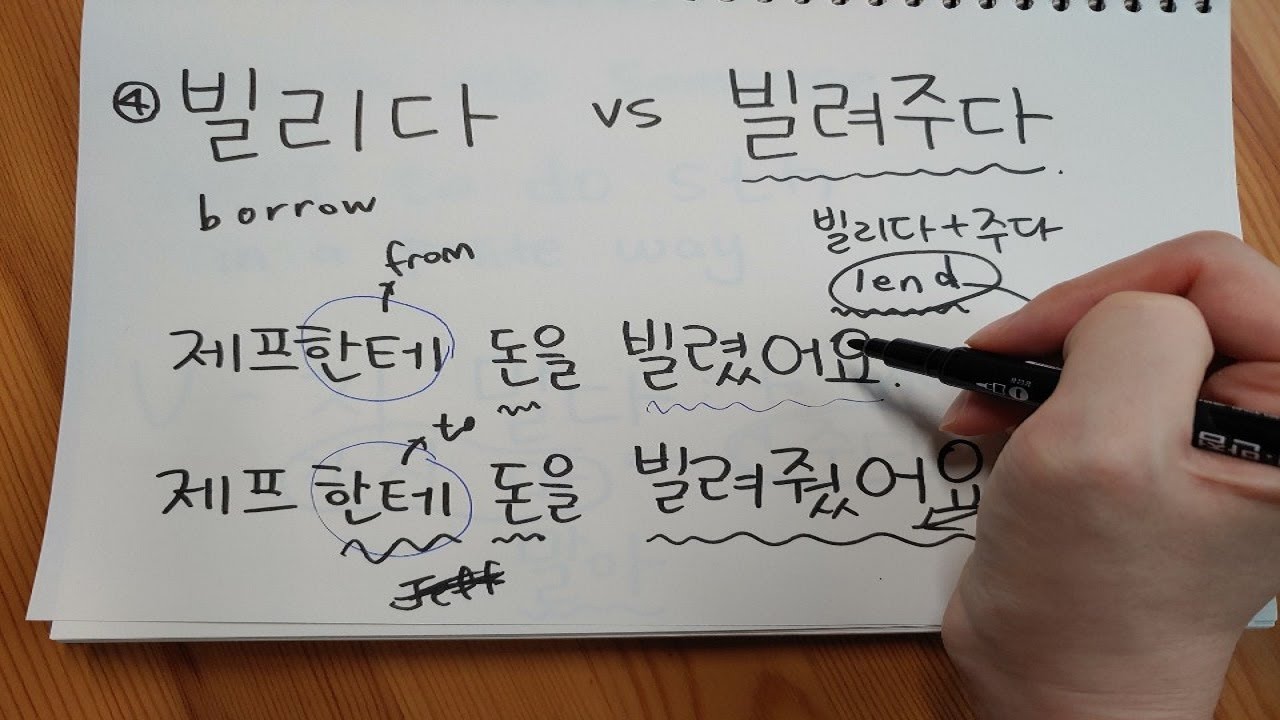 ④ 빌리다 vs 빌려주다.
borrow
빌리다+주다
from
lend
제프한테 돈을 빌렸어요.
to
제프한테 돈을 빌려줬어요
Jeff